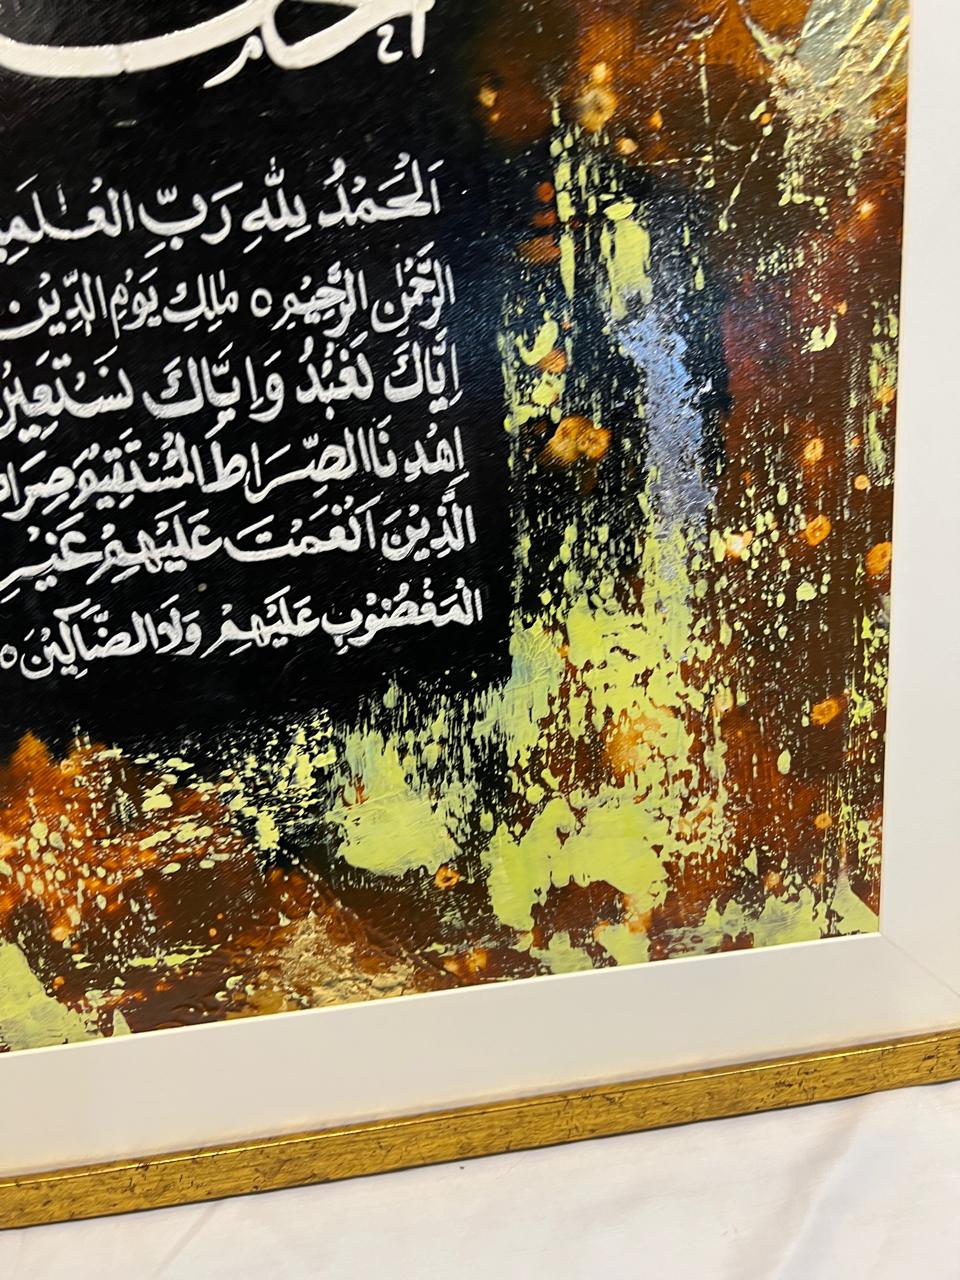 اَلْحَمْدُ لِلّٰهِ رَبِّ الْعٰلَمِ
الرَّحْمٰنِ الرَّحِيْمِ ○ مٰلِكِ يَوْمِ الدِّيْنِ
اِيَّاكَ نَعْبُدُ وَاِيَّاكَ نَسْتَعِيْنُ
اِهْدِنَا الصِّرَاطَ الْمُسْتَقِيْمَ صِرَاطَ
الَّذِيْنَ اَنْعَمْتَ عَلَيْهِمْ غَيْرِ
الْمَغْضُوْبِ عَلَيْهِمْ وَلَا الضَّآلِّيْنَ ○